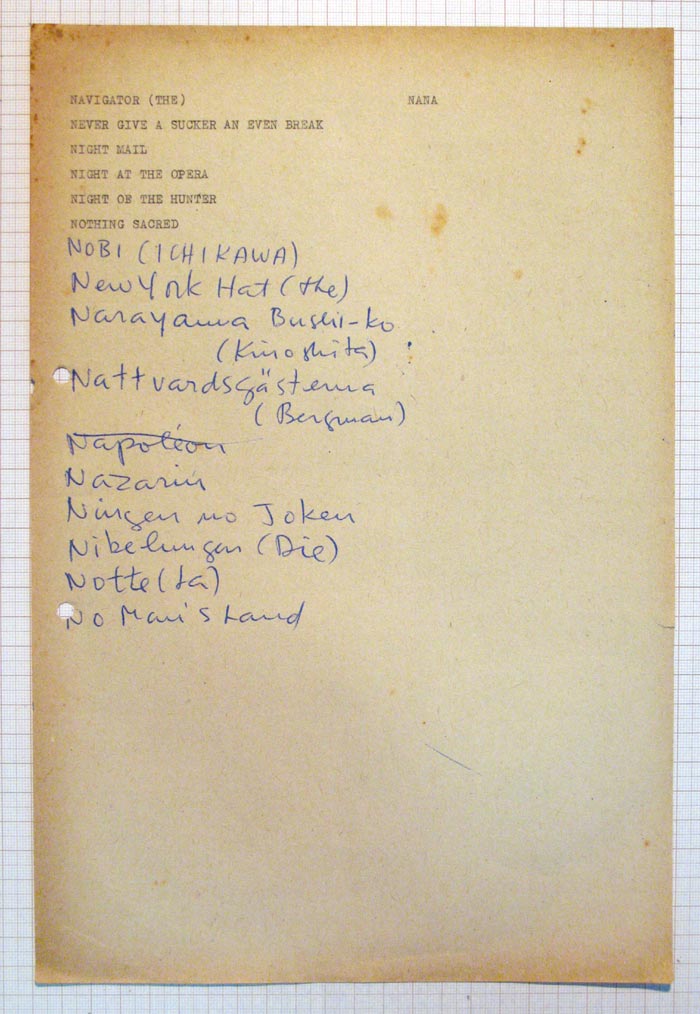 NAVIGATOR (THE) NANA
NEVER GIVE A SUCKER AN EVEN BREAK
NIGHT MAIL
NIGHT AT THE OPERA
NIGHT OF THE HUNTER
NOTHING SACRED
NOBI (ICHIKAWA)
New York Hat (the)
Narayama Bushi-ko
(Kinoshita)
Nattvardsgästerna
(Bergman)
Napoléon
Nazarin
Ningen no Joken
Nibelungen (Die)
Notte (La)
No Man's Land